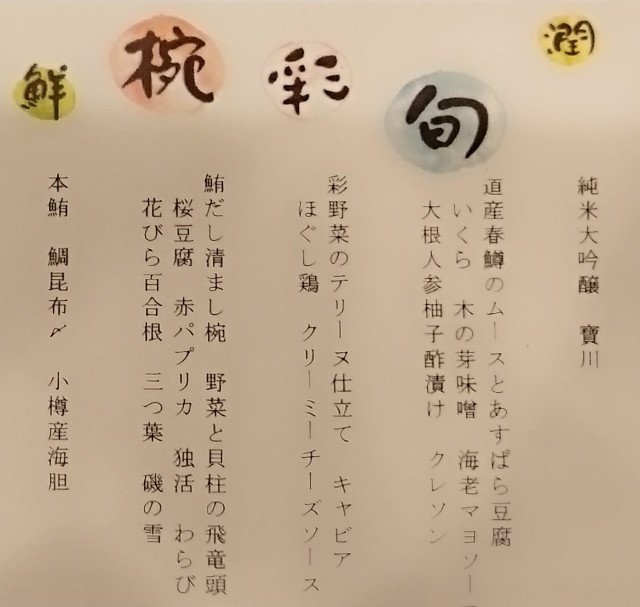 潤
純米大吟醸　寶川
旬
道産春鱒のムースとあすぱら豆腐
いくら　木の芽味噌　海老マヨソー
大根人参柚子酢漬け　クレソン
彩
彩野菜のテリーヌ仕立て　キャビア
ほぐし鶏　クリーミーチーズソース
椀
鮪だし清まし椀　野菜と貝柱の飛竜頭
桜豆腐　赤パプリカ　独活　わらび
花びら百合根　三つ葉　磯の雪
鮮
本鮪　鯛昆布〆　小樽産海胆